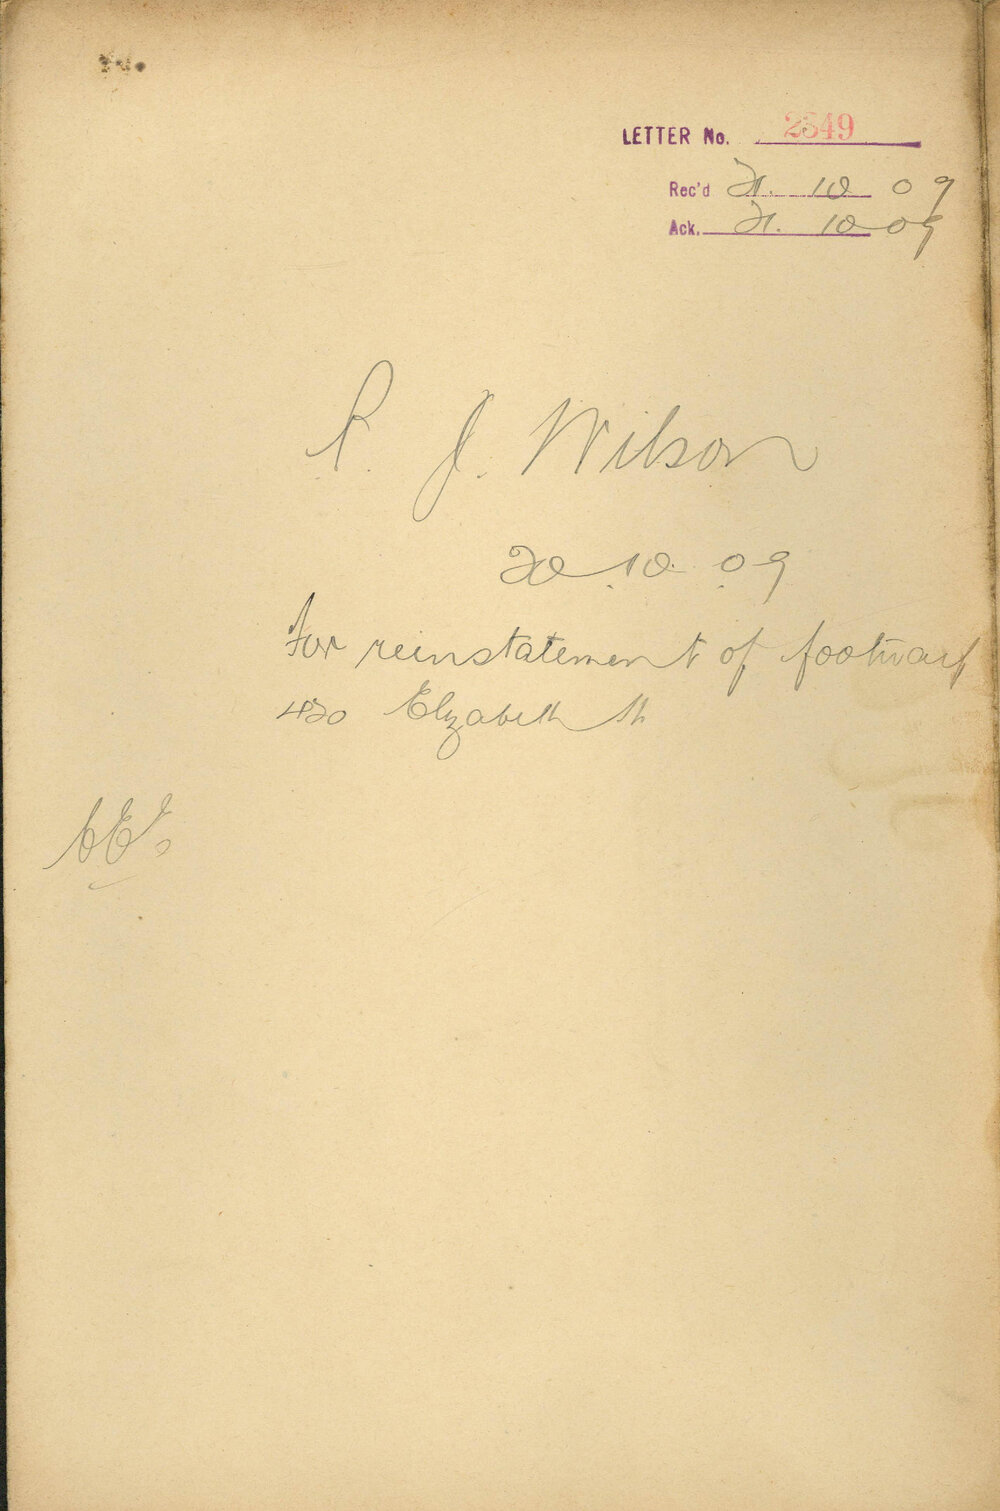 LETTER No. 2549
Rec'd 21. 10 09
Ack. 21. 10 09
P. J. Wilson
20.10.09
For reinstatement of footway
420 Elizabeth St